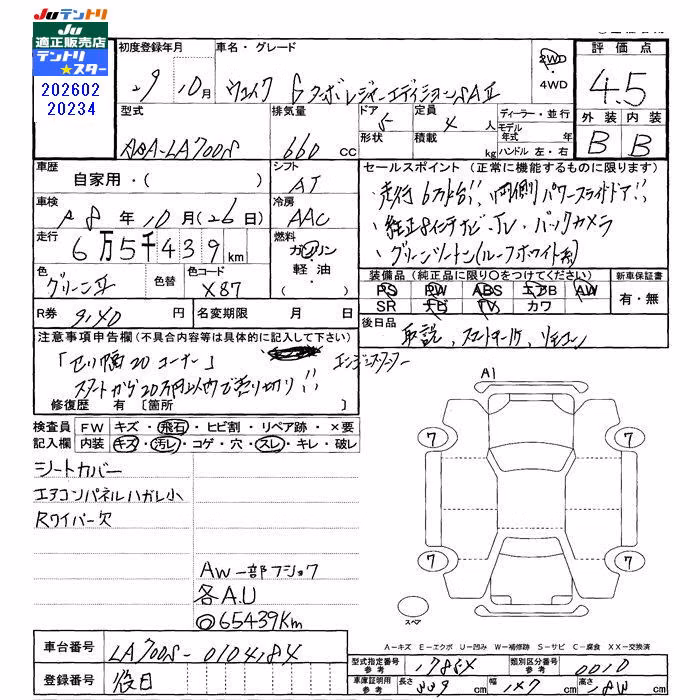 JUテントリ
JU
適正販売店
テントリ
★スター
202602
20234
初度登録年月
車名・グレード
評価点
29年10月
ウェイク Gターボレジャーエディション SAⅡ
2WD
・
4WD
4.5
型式
排気量
ドア
定員
ディーラー・並行
外装 内装
DBA-LA700S
660 cc
5
4人
モデル年式 年
形状
積載
kg
ハンドル 左・右
B B
車歴
自家用・( )
シフト
AT
セールスポイント(正常に機能するものに限ります)
・走行6万km台!! 両側パワースライドドア!!
・純正8インチナビ・TV・バックカメラ
・グリーンツートン(ルーフホワイト系)
車検
R8年10月(26日)
冷房
AAC
走行
6万5千439km
燃料
ガソリン
軽油
・( )
色
グリーンⅡ
色替
色コード
X87
装備品(純正品に限り○をつけてください)
新車保証書
PS PW ABS エアB AW
SR ナビ TV カワ
有・無
R券
9,140円
名変期限 月 日
後日品
取説、スマートキー1ケ、リモコン
エンジンスターター
注意事項申告欄(不具合内容等は具体的に記入して下さい)
「セリ順20コーナー」
スタートから20万円以内で売り切り!!
修復歴 有〔箇所 〕
検査員
記入欄
FW キズ・飛石・ヒビ割・リペア跡・×要
内装 キズ・汚レ・コゲ・穴・スレ・キレ・破レ
シートカバー
エアコンパネルハガレ小
Rワイパー欠
AW一部フショク
各A.U
◎65439Km
A1
7
7
7
7
スペア
A-キズ E-エクボ U-凹み W-補修跡 S-サビ C-腐食 XX-交換済
車台番号
LA700S-0104184
型式指定番号
参考
17864
類別区分番号
参考
0010
登録番号
後日
車庫証明用
参考
長さ 339 cm
幅 147 cm
高さ 183 cm